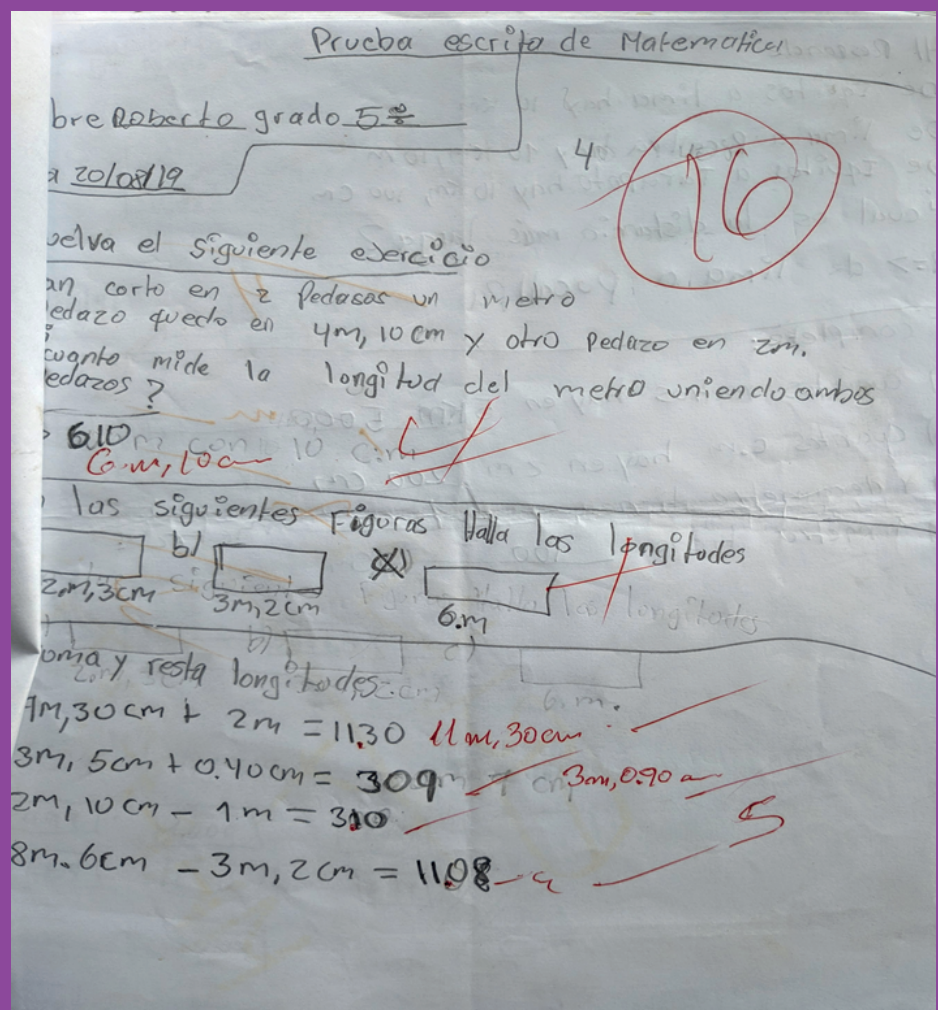 Prueba escrita de Matematica
bre Roberto grado 5º
a 20/08/19
4
16
uelva el siguiente ejercicio
an corto en 2 Pedasos un metro
edazo quedo en 4m, 10 cm y otro Pedazo en 2m.
cuanto mide la longitud del metro uniendo ambos
edazos?
610
6m, 10 cm
las siguientes Figuras Halla las longitudes
b)
2m, 3cm
3m, 2cm
6.m
oma y resta longitudes:
9m, 30 cm + 2m = 11.30 11m, 30cm
3m, 5cm + 0.40cm = 309 3m, 0.90
2m, 10 cm - 1m = 310
5
8m. 6cm - 3m, 2cm = 11.08